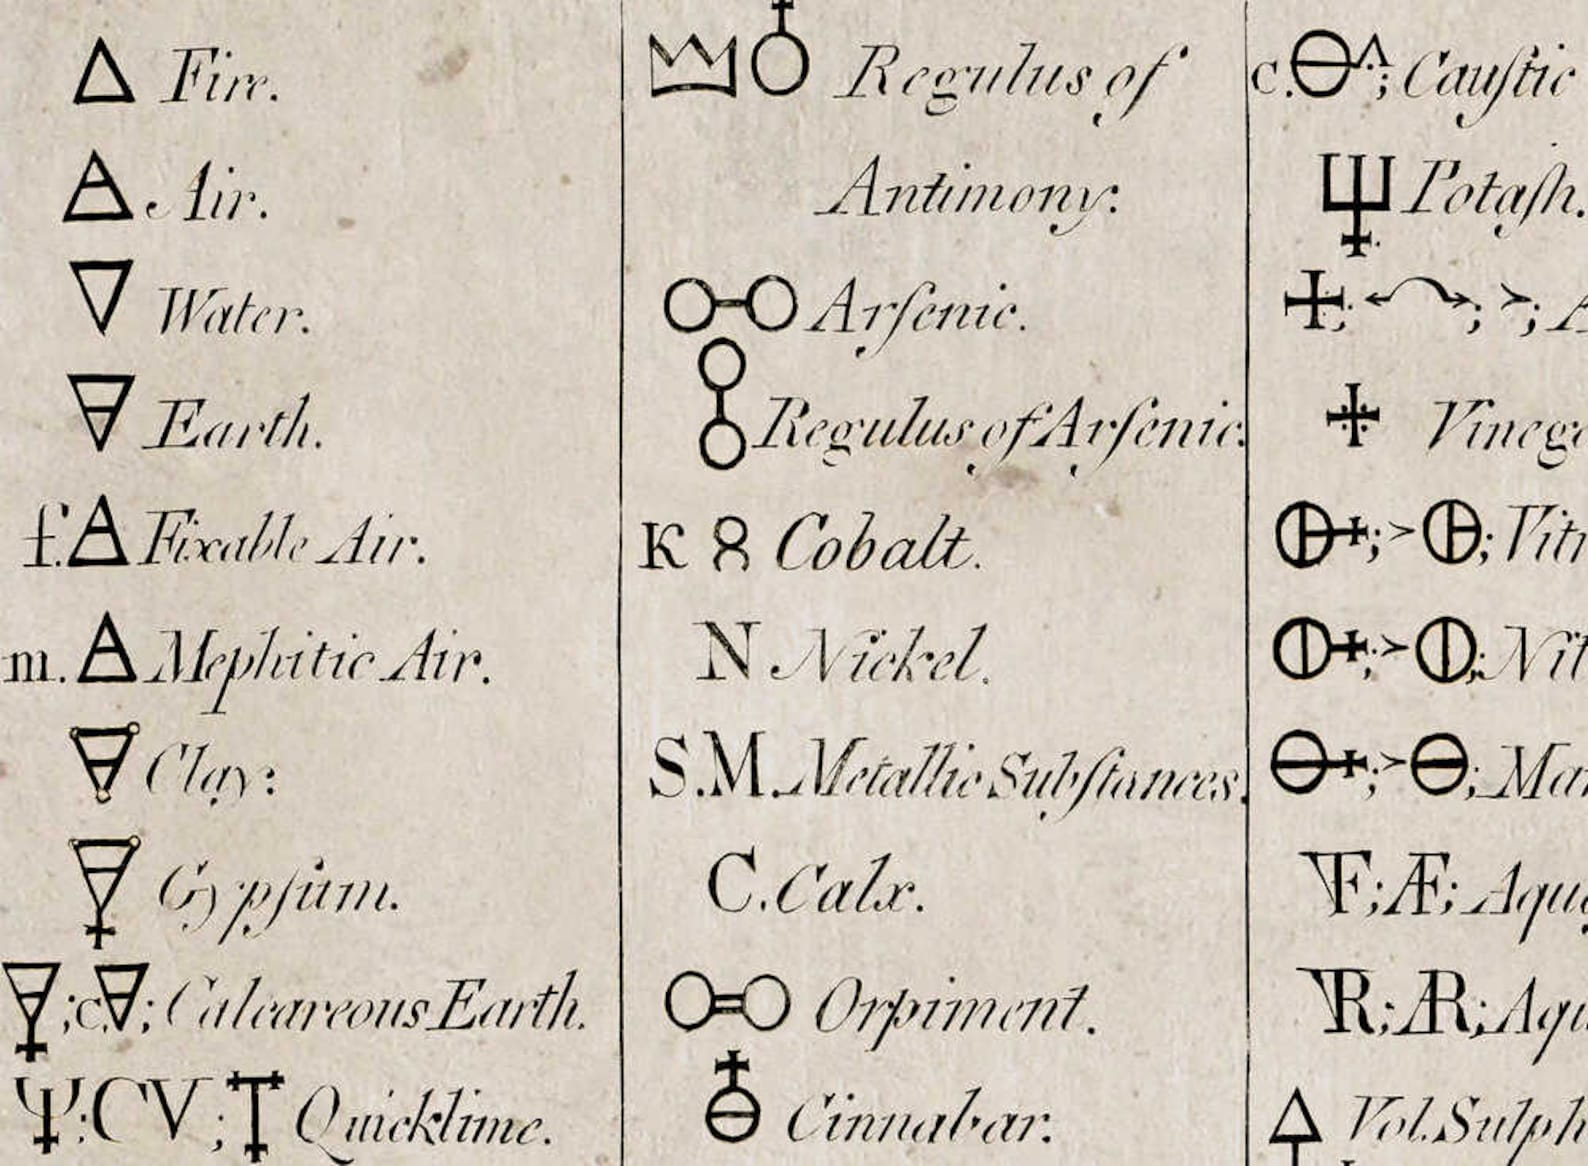 🜂 Fire.
🜁 Air.
🜄 Water.
🜃 Earth.
f.🜁 Fixable Air.
m.🜁 Mephitic Air.
Clay.
Gypſum.
;c.🜃; Calcareous Earth.
Ψ;CV; Quicklime.
Regulus of
Antimony.
Arſenic.
Regulus of Arſenic.
K 8 Cobalt.
N Nickel.
S.M. Metallic Subſtances.
C. Calx.
Orpiment.
Cinnabar.
c.; Cauſtic
Potaſh.
Vol. Sulph